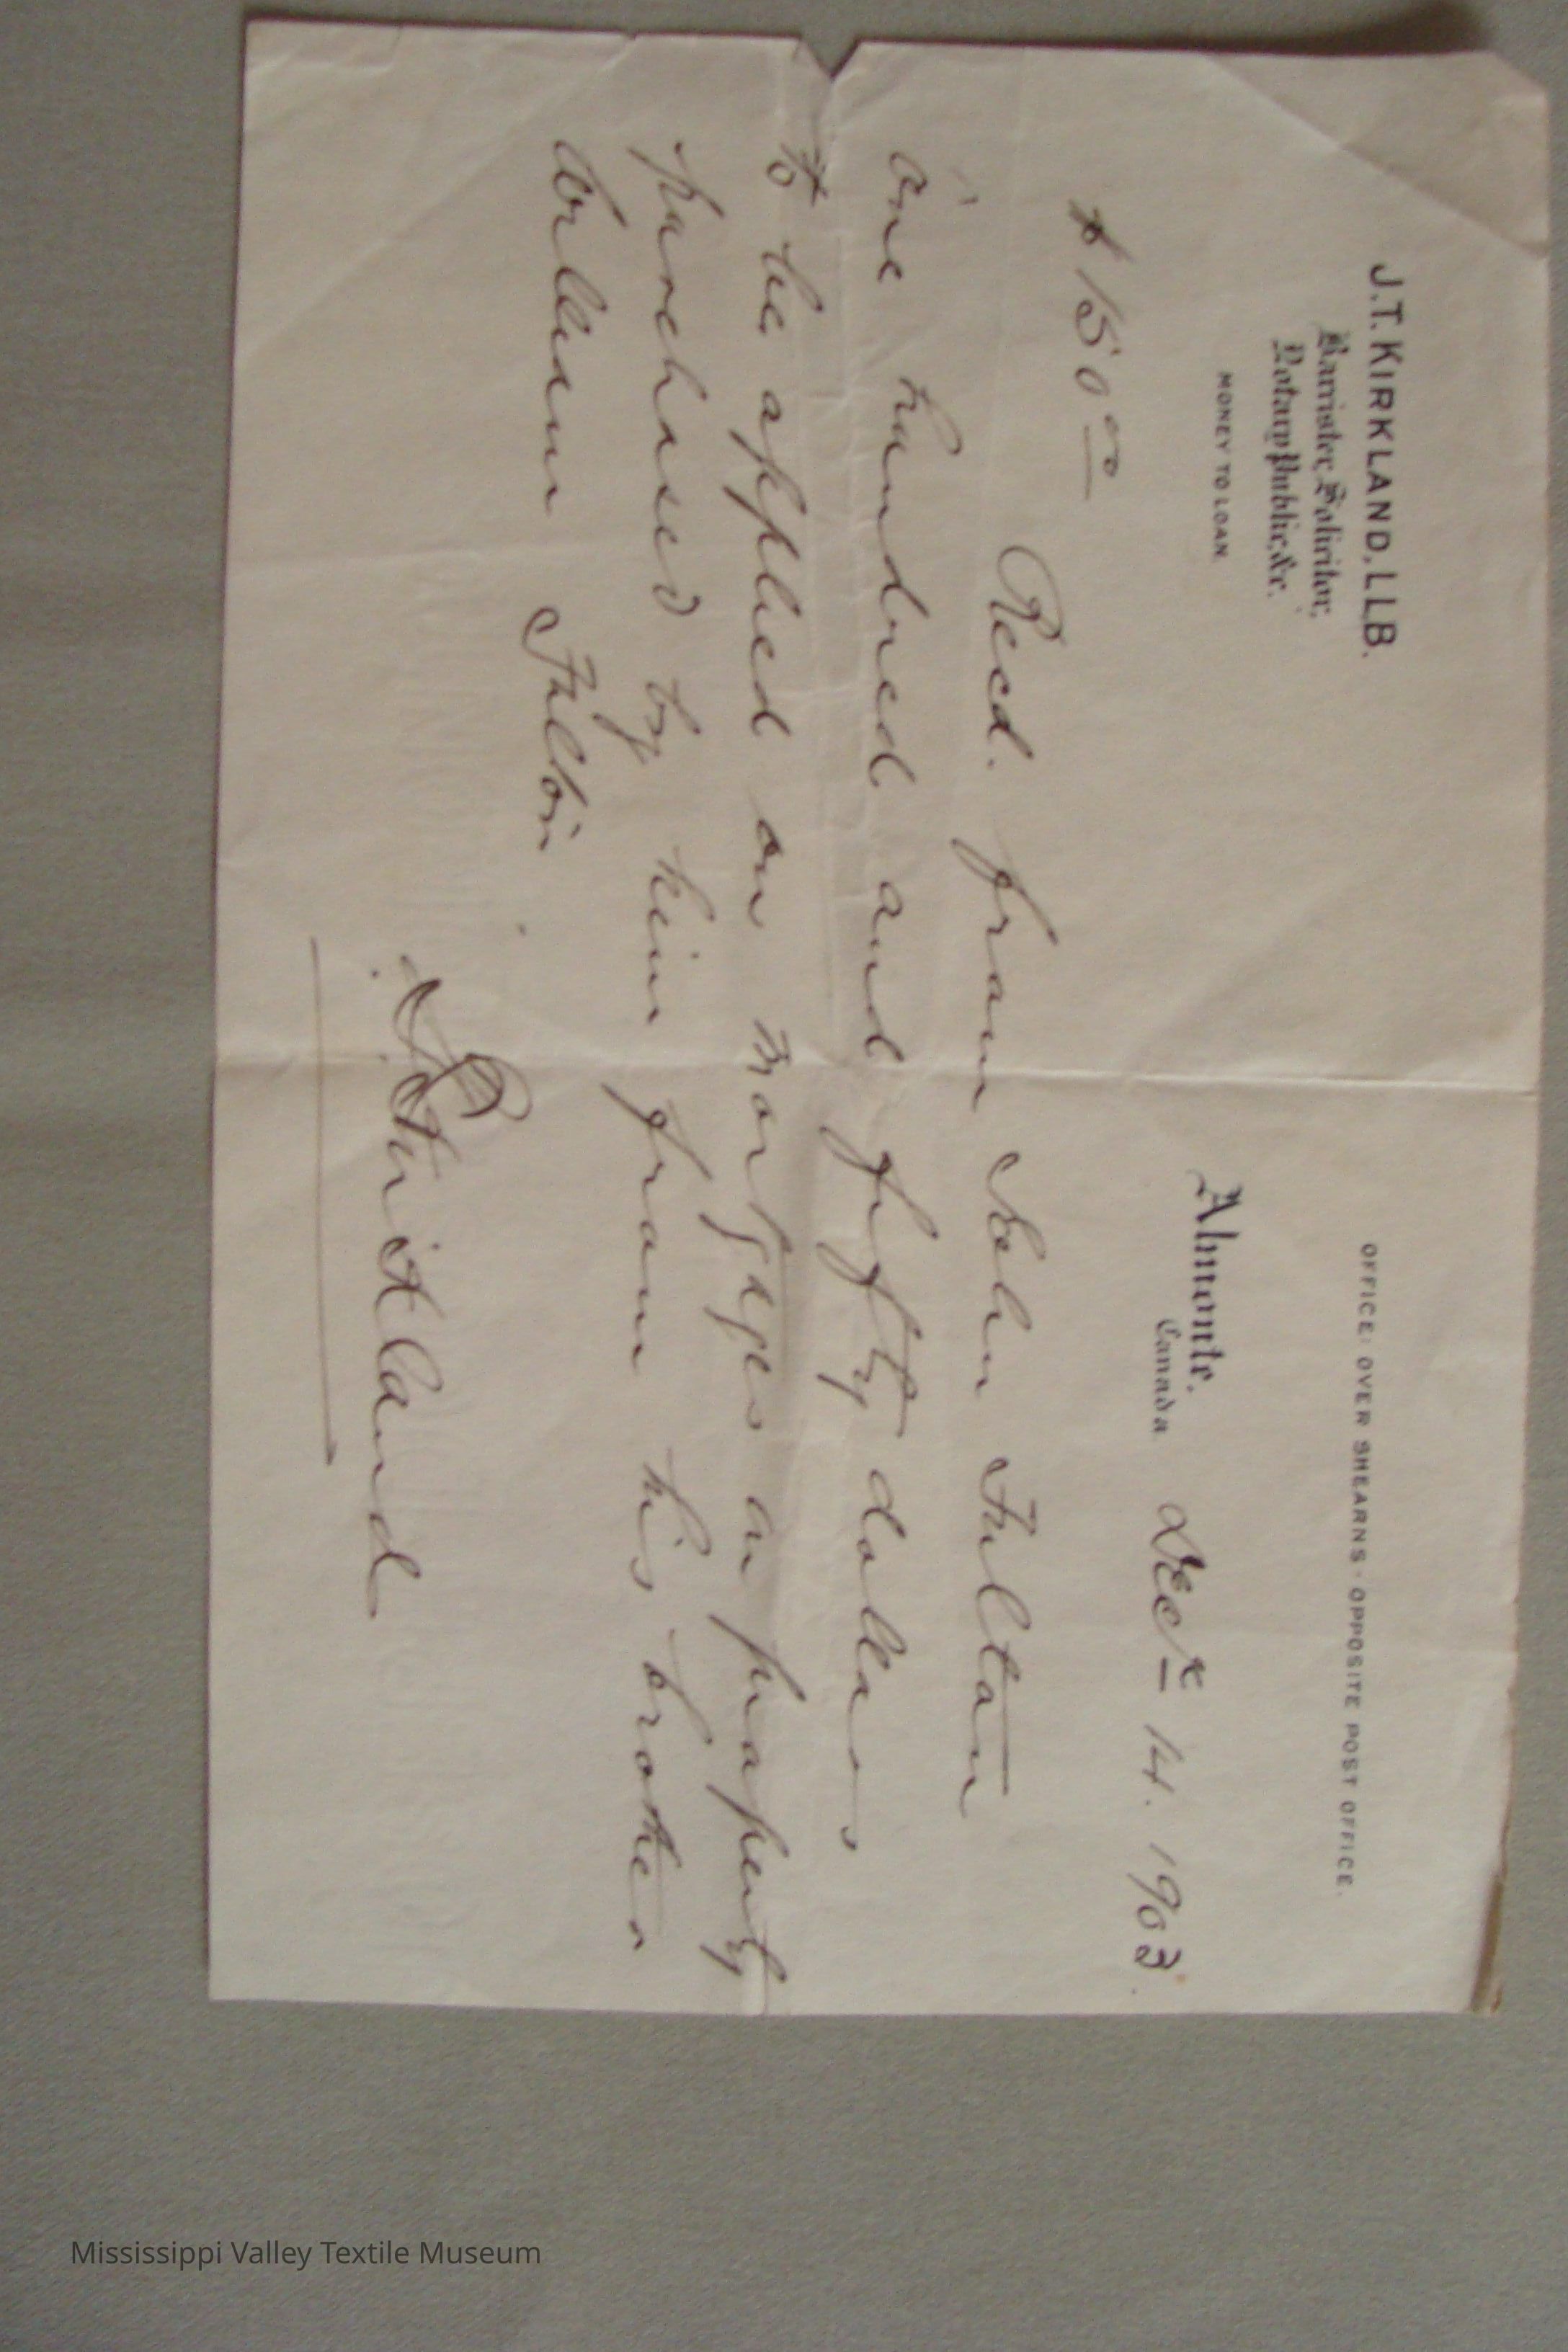 J.T. KIRKLAND, LLB.
Barrister, Solicitor,
Notary Public, &c.
MONEY TO LOAN.
OFFICE: OVER SHEARNS · OPPOSITE POST OFFICE.
Almonte,
Canada Decr 14. 1903.
$150 00
Recd. from John Fulton
one hundred and fifty dollars
to be applied on mortgages on property
purchased by him from his brother
William Fulton
J T Kirkland
Mississippi Valley Textile Museum